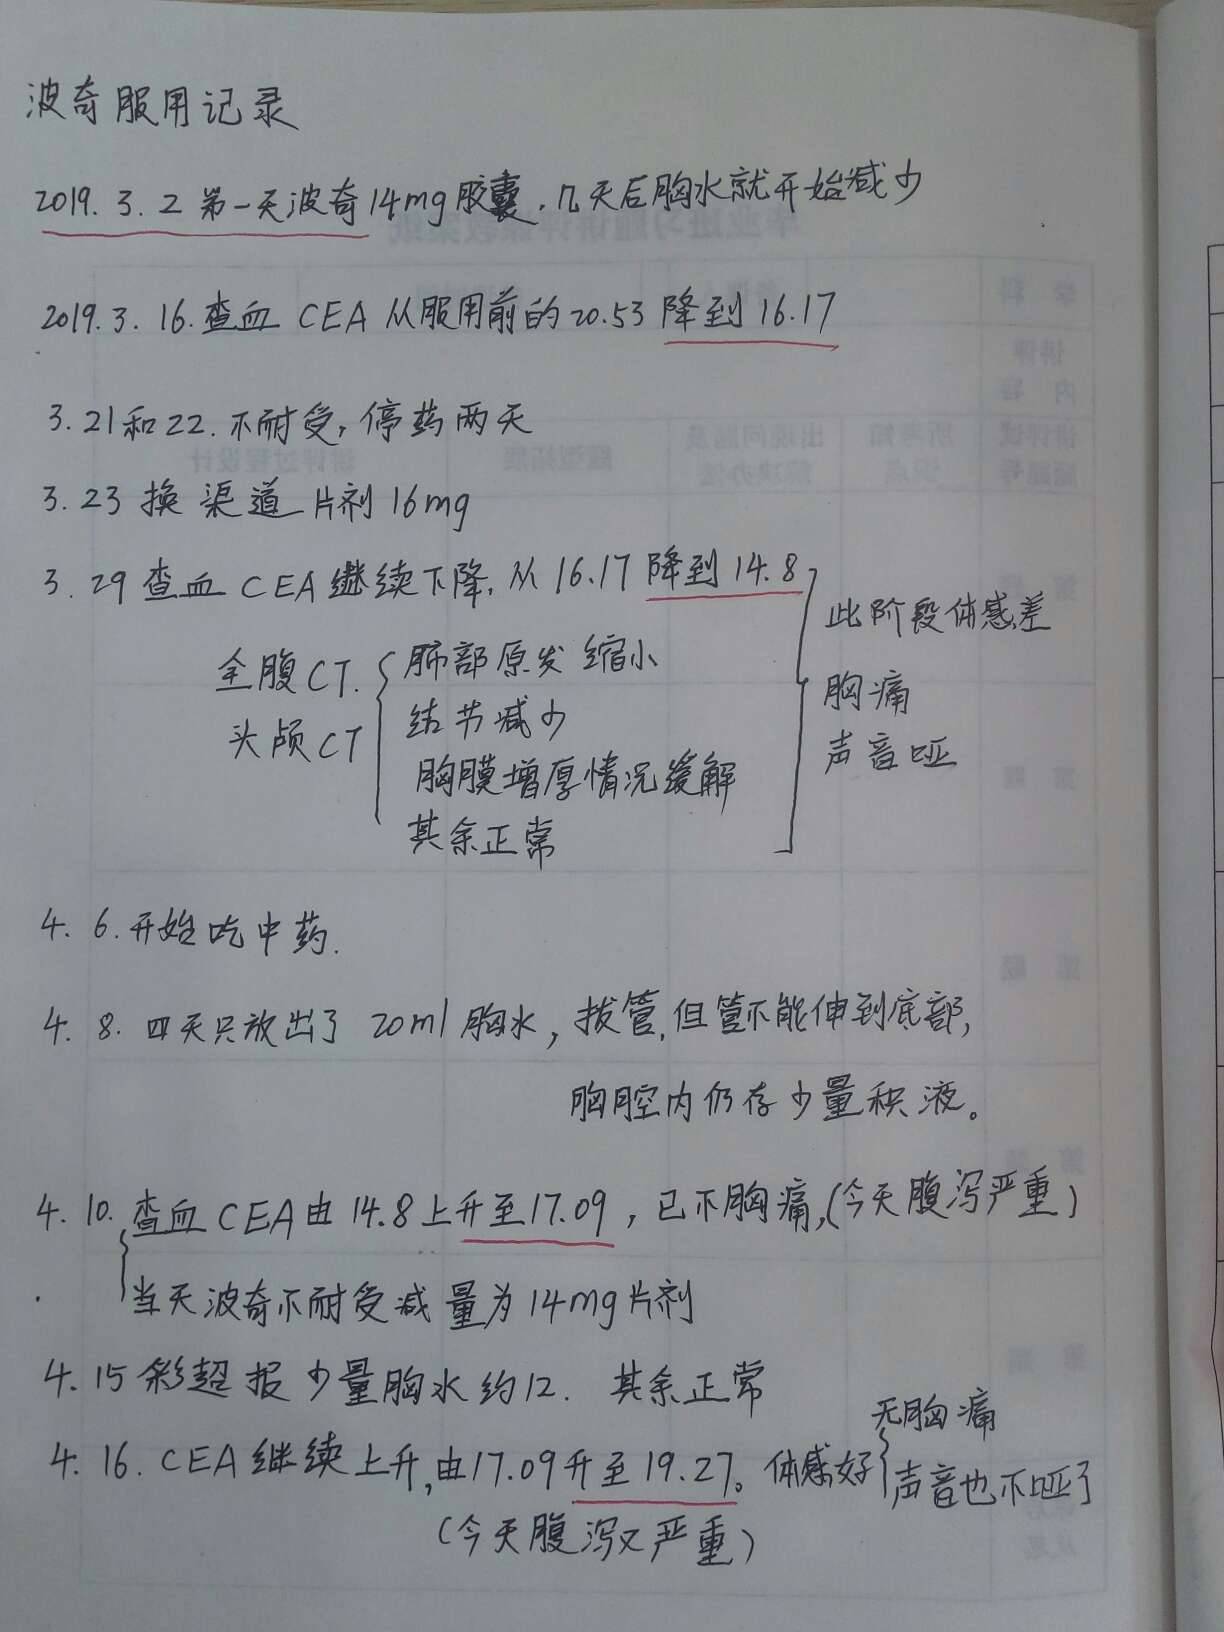 波奇服用记录
2019.3.2 第一天波奇14mg胶囊.几天后胸水就开始减少
2019.3.16.查血 CEA从服用前的20.53降到16.17
3.21和22.不耐受,停药两天
3.23 换渠道片剂16mg
3.29查血CEA继续下降,从16.17降到14.8
此阶段体感差
胸痛
声音哑
全腹CT.
头颅CT
肺部原发缩小
结节减少
胸膜增厚情况缓解
其余正常
4.6.开始吃中药.
4.8.四天只放出了20ml胸水,拔管,但管不能伸到底部,
胸腔内仍存少量积液。
4.10.查血CEA由14.8上升至17.09,已不胸痛,(今天腹泻严重)
当天波奇不耐受减量为14mg片剂
4.15彩超报少量胸水约12. 其余正常
4.16.CEA继续上升,由17.09升至19.27。体感好
无胸痛
声音也不哑了
(今天腹泻又严重)